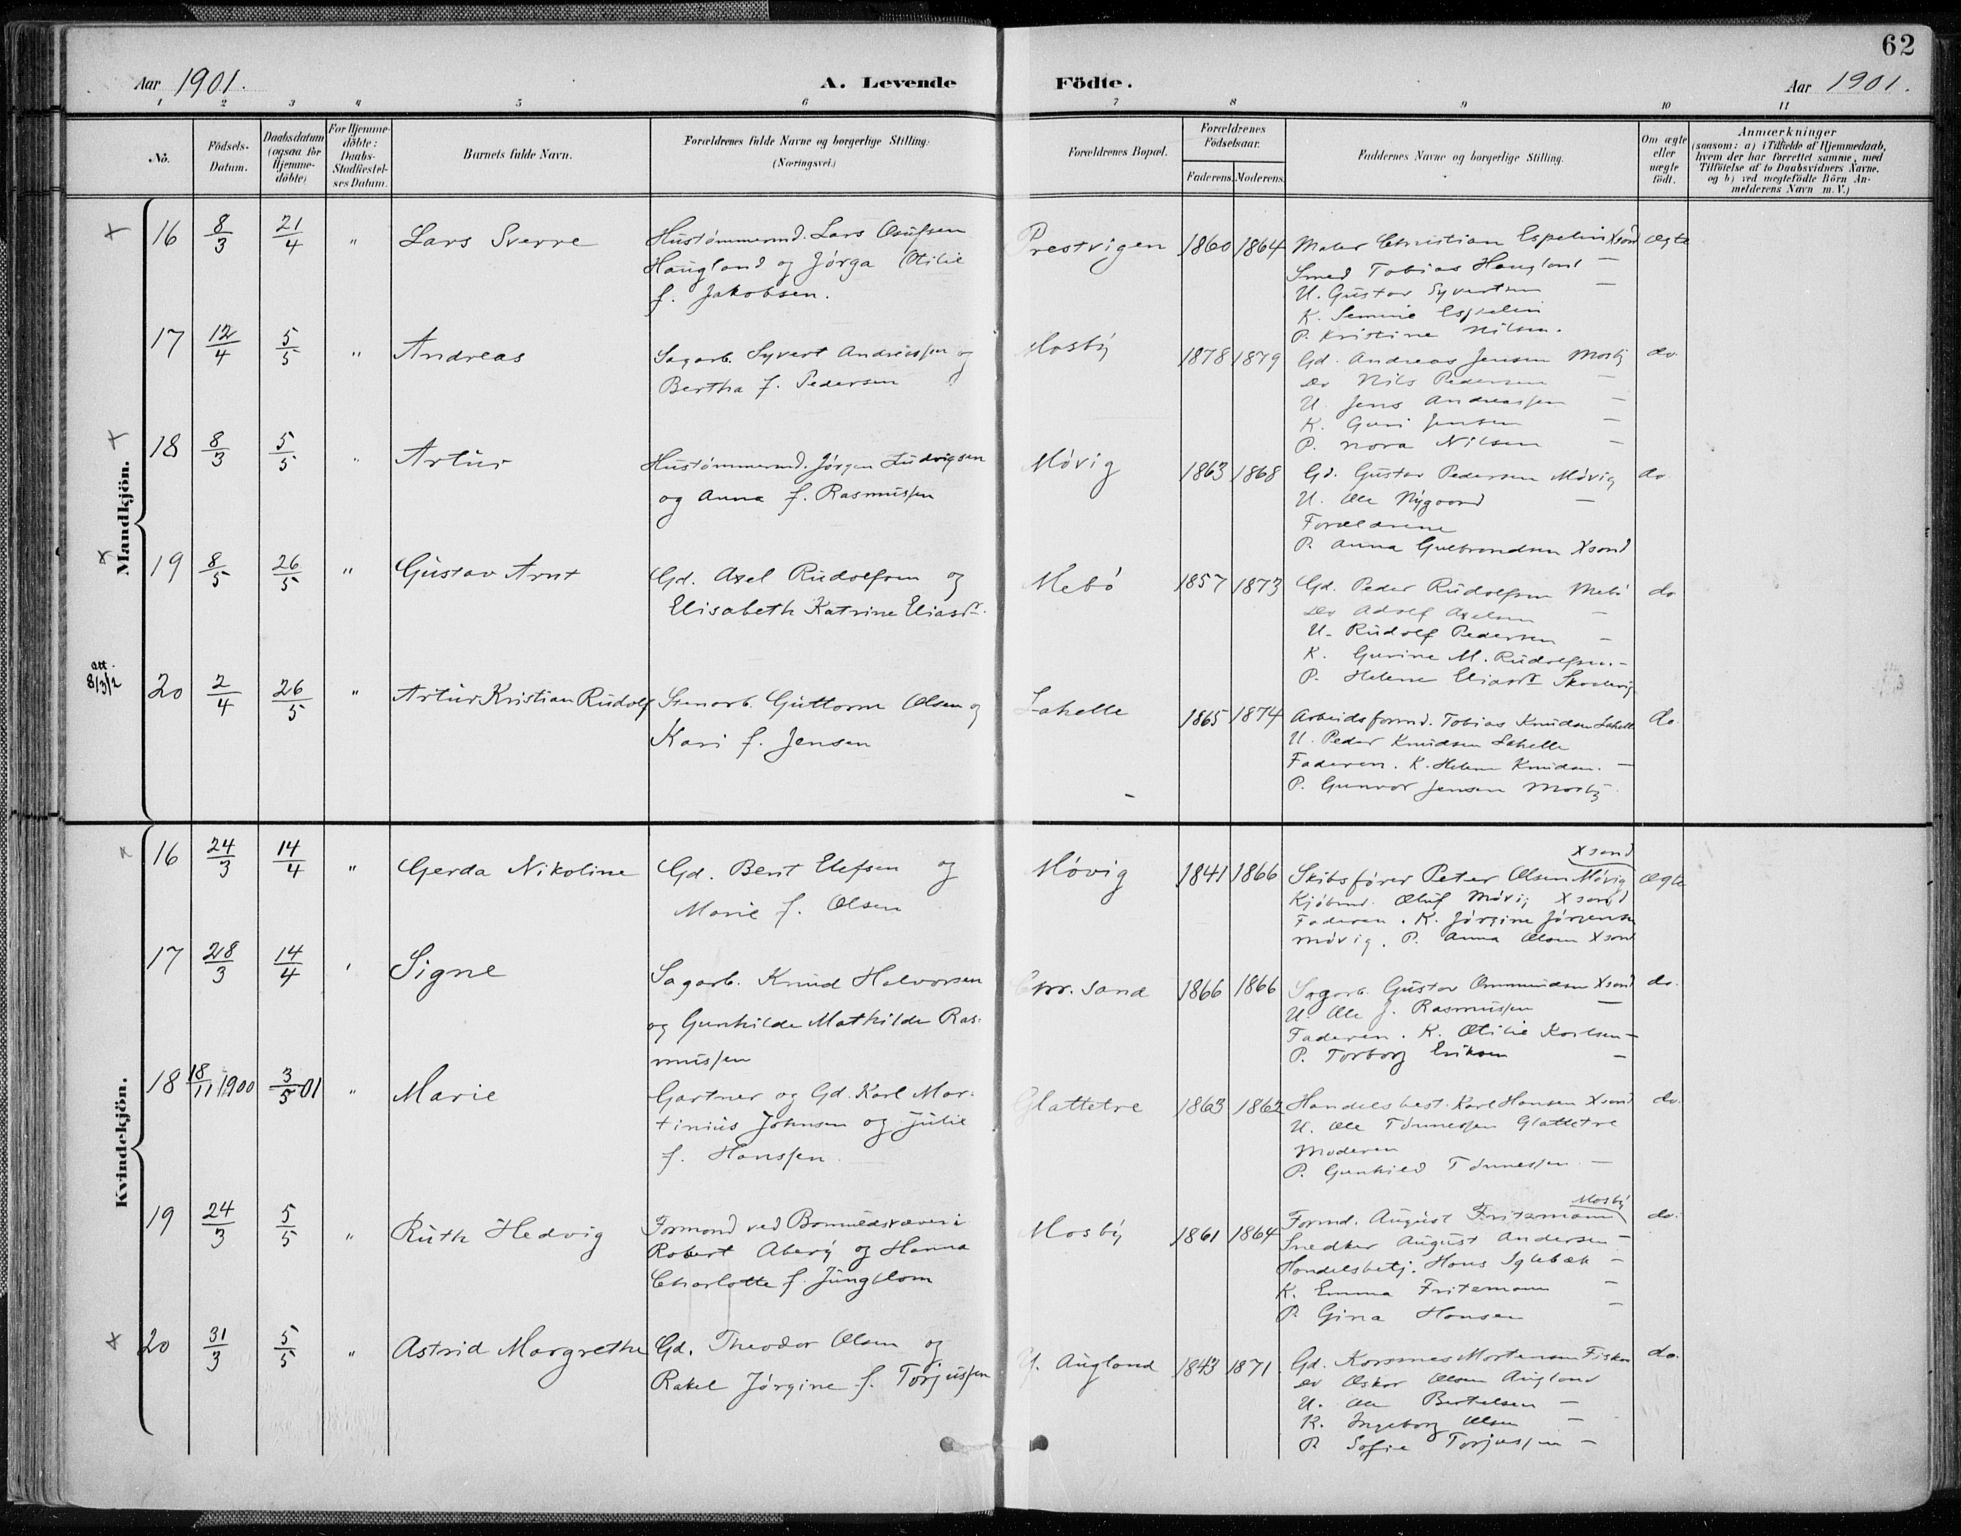 62
Aar 1901.
A. Levende Födte.
Aar 1901.
1 2 3 4 5 6 7 8 9 10 11
No.
Födsels-Datum.
Daabsdatum (ogsaa for Hjemme-döbte)
For Hjemme-döbte: Daabs-Stadfæstel-ses Datum.
Barnets fulde Navn.
Forældrenes fulde Navne og borgerlige Stilling. (Næringsvei.)
Forældrenes Bopæl.
Forældrenes Födselsaar.
Faderens. Moderens.
Faddernes Navne og borgerlige Stilling.
Om ægte eller uægte födt.
Anmærkninger
(saasom: a) i Tilfælde af Hjemmedaab,
hvem der har forrettet samme, med
Tilföielse af to Daabsvidners Navne.
og b) ved uegtefödte Börn An-
melderens Navn m. V.)
Mandkjön.
16 8/3 21/4 " Lars Sverre
Hustømmermd. Lars
Haugland og Jørga Otilie
f. Jakobsen.
Prestvigen 1860 1864
Maler Christian Espelin Xsand ægte
Smed Tobias Haugland –
U. Gustav Syvertsen –
K. Semine Espelin
P. Kristine Nilsen.
17 12/4 5/5 " Andreas
Sagarb. Syvert Andreassen og
Bertha f. Pedersen
Mosby 1878 1879
Gd. Andreas Jensen Mosby do.
Do Nils Pedersen –
U. Jens Andreassen –
K. Guri Jensen –
P. Nora Nilsen –
18 8/3 5/5 " Artur
Hustømmermd. Jørgen Ludvigsen
og Anna f. Rasmussen
Møvig 1863 1868
Gd. Gustav Pedersen Møvig do.
U. Ole Nygaard –
Forældrene
P. Anna Gulbrandsen Xsand
19 8/5 26/5 " Gustav Arnt
Gd. Axel Rudolfsen og
Elisabeth Katrine Eliasdr.
Mebø 1857 1873
Gd. Peder Rudolfsen Mebø do
Do Adolf Axelsen –
U. Rudolf Pedersen –
K. Gurine M. Rudolfsen. –
P. Helene Eliasdr
att. 8/3 12
20 2/4 26/5 " Artur Kristian Rudolf
Stenarb. Guttorm Olsen og
Kari f. Jensen
Lahelle 1865 1874
Arbeidsformd. Tobias Knudsen Lahelle do.
U. Peder Knudsen Lahelle
Faderen. K. Helene Knudsen. –
P. Gunvor Jensen Mosby
Kvindekjön.
16 24/3 14/4 " Gerda Nikoline
Gd. Berit Elefsen og
Marie f. Olsen
Møvig 1841 1866
Xsand
Skibsfører Peter Olsen Møvig ægte
Kjøbmd. Oluf Møvig Xsand
Faderen. K. Jørgine Jørgensen
Møvig. P. Anna Olsen Xsand
17 28/3 14/4 " Signe
Sagarb. Knud Halvorsen
og Gunhilde Mathilde Ras-
mussen
Chr.sand 1866 1866
Sagarb. Gustav Ommundsen Xsand do.
U. Ole J. Rasmussen –
Faderen. K. Otilie Karlsen –
P. Torborg Eriksen –
18 18/11 1900 3/5 01 " Marie
Gartner og Gd. Karl Mar-
tinius Johnsen og Julie
f. Hanssen.
Glattetre 1863 1862
Handelsbest. Karl Hansen Xsand do.
U. Ole Tønnessen Glattetre
Moderen
P. Gunhild Tønnessen –
19 24/3 5/5 " Ruth Hedvig
Formand ved Bomuldsvæveri
Robert Aberg og Hanna
Charlotte f. Jungblom
Mosby 1861 1864
Mosby
Formd. August Fritzmann do.
Snedker August Andersen –
Handelsbetj. Hans Iglebæk –
K. Emma Fritzmann –
P. Gina Hansen –
20 31/3 5/5 " Astrid Margrethe
Gd. Theodor Olsen og
Rakel Jørgine f. Torjussen
Y. Augland 1843 1871
Gd. Mortensen do.
Do Oskar Olsen Augland
U. Ole Bertelsen –
K. Ingeborg Olsen –
P. Sofie Torjussen –